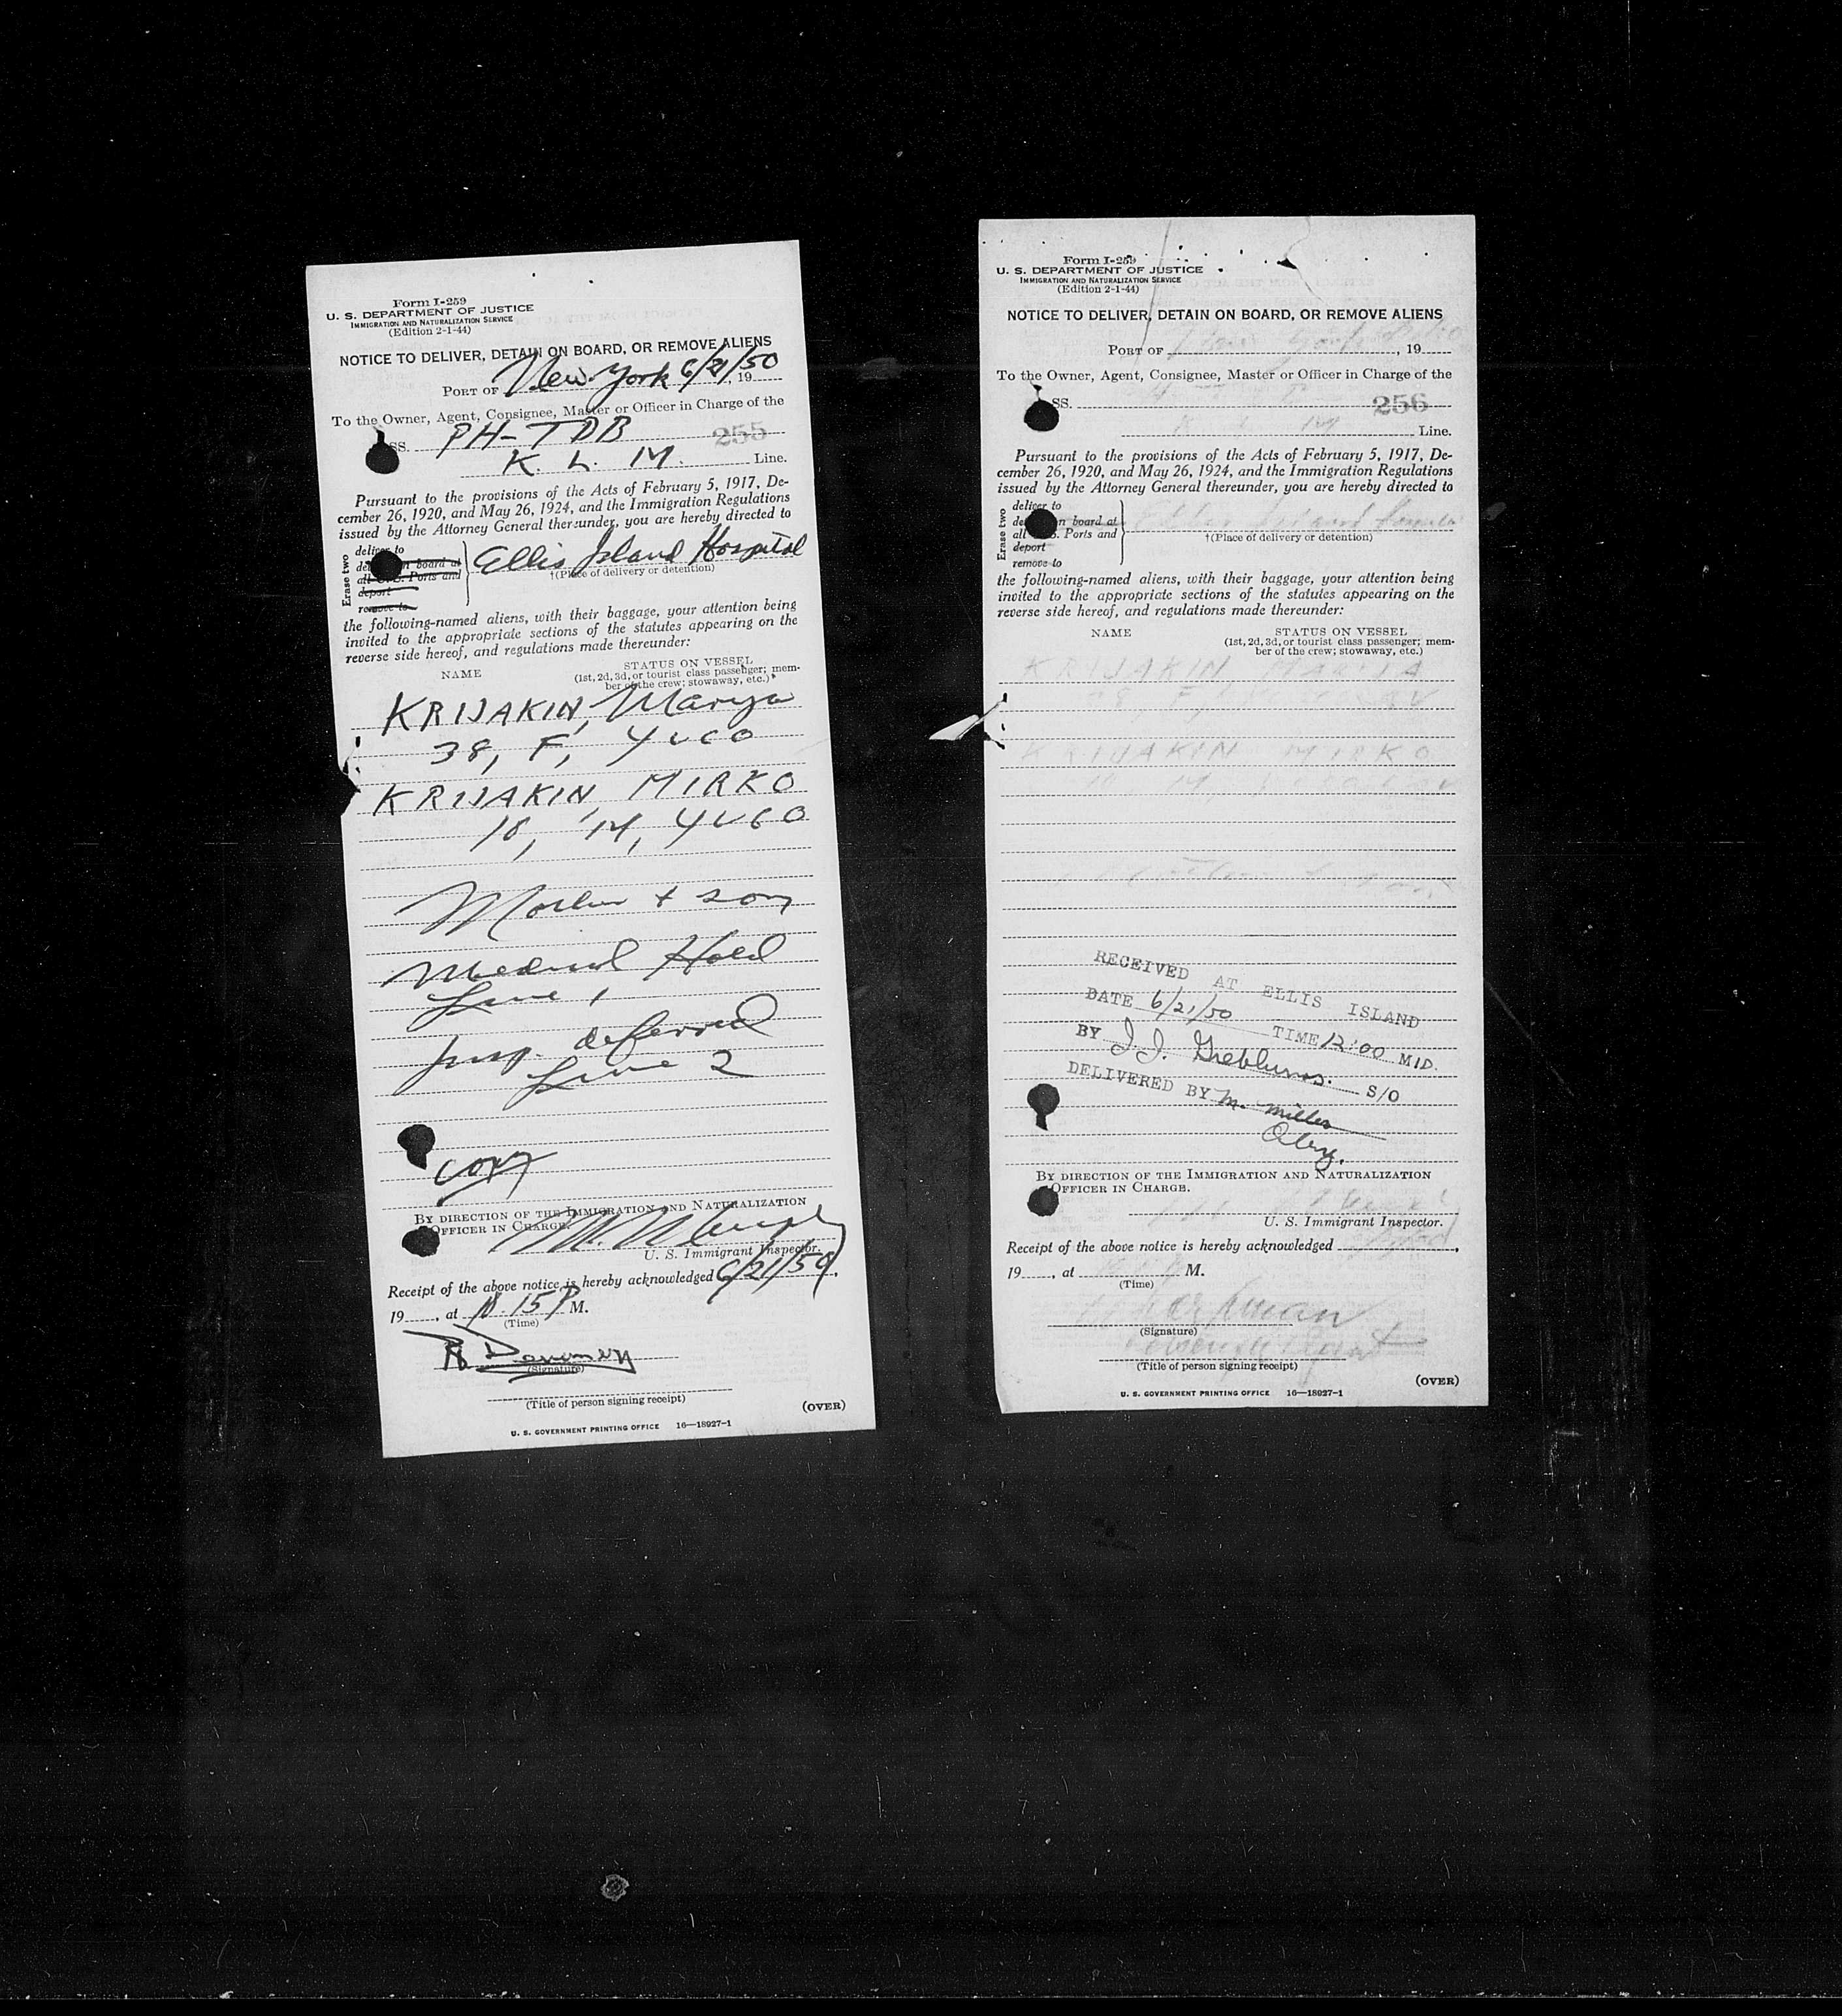 Form I-259
U. S. DEPARTMENT OF JUSTICE
IMMIGRATION AND NATURALIZATION SERVICE
(Edition 2-1-44)
NOTICE TO DELIVER, DETAIN ON BOARD, OR REMOVE ALIENS
PORT OF New York 6/21/50, 19
To the Owner, Agent, Consignee, Master or Officer in Charge of the
SS. PH-TDB 255
K. L. M. Line.
Pursuant to the provisions of the Acts of February 5, 1917, De-
cember 26, 1920, and May 26, 1924, and the Immigration Regulations
issued by the Attorney General thereunder, you are hereby directed to
Erase two
deliver to
n board at
all U.S. Ports and
deport
remove to
Ellis Island Hospital
†(Place of delivery or detention)
the following-named aliens, with their baggage, your attention being
invited to the appropriate sections of the statutes appearing on the
reverse side hereof, and regulations made thereunder:
NAME STATUS ON VESSEL
(1st, 2d, 3d, or tourist class passenger; mem-
ber of the crew; stowaway, etc.)
KRIJAKIN, Marya
38, F, YUGO
KRIJAKIN, MIRKO
10, M, YUGO
Mother + son
Medical Hold
Line 1
Insp. deferred
Line 2
COPY
BY DIRECTION OF THE IMMIGRATION AND NATURALIZATION
OFFICER IN CHARGE.
U. S. Immigrant Inspector.
Receipt of the above notice is hereby acknowledged 6/21/50,
19, at 15 P M.
(Time)
(Signature)
(Title of person signing receipt)
(OVER)
U. S. GOVERNMENT PRINTING OFFICE 16—18927-1
Form I-259
U. S. DEPARTMENT OF JUSTICE
IMMIGRATION AND NATURALIZATION SERVICE
(Edition 2-1-44)
NOTICE TO DELIVER, DETAIN ON BOARD, OR REMOVE ALIENS
PORT OF New York, 19
To the Owner, Agent, Consignee, Master or Officer in Charge of the
SS. 256
K L M Line.
Pursuant to the provisions of the Acts of February 5, 1917, De-
cember 26, 1920, and May 26, 1924, and the Immigration Regulations
issued by the Attorney General thereunder, you are hereby directed to
Erase two
deliver to
n board at
all Ports and
deport
remove to
Ellis Island
†(Place of delivery or detention)
the following-named aliens, with their baggage, your attention being
invited to the appropriate sections of the statutes appearing on the
reverse side hereof, and regulations made thereunder:
NAME STATUS ON VESSEL
(1st, 2d, 3d, or tourist class passenger; mem-
ber of the crew; stowaway, etc.)
KRIJAKIN
KRIJAKIN MIRKO
10 M
RECEIVED AT ELLIS ISLAND
DATE 6/21/50 TIME 12:00 MID.
BY J.J. S/O
DELIVERED BY M. Miller
BY DIRECTION OF THE IMMIGRATION AND NATURALIZATION
OFFICER IN CHARGE.
U. S. Immigrant Inspector.
Receipt of the above notice is hereby acknowledged,
19, at M.
(Time)
(Signature)
(Title of person signing receipt)
(OVER)
U. S. GOVERNMENT PRINTING OFFICE 16—18927-1